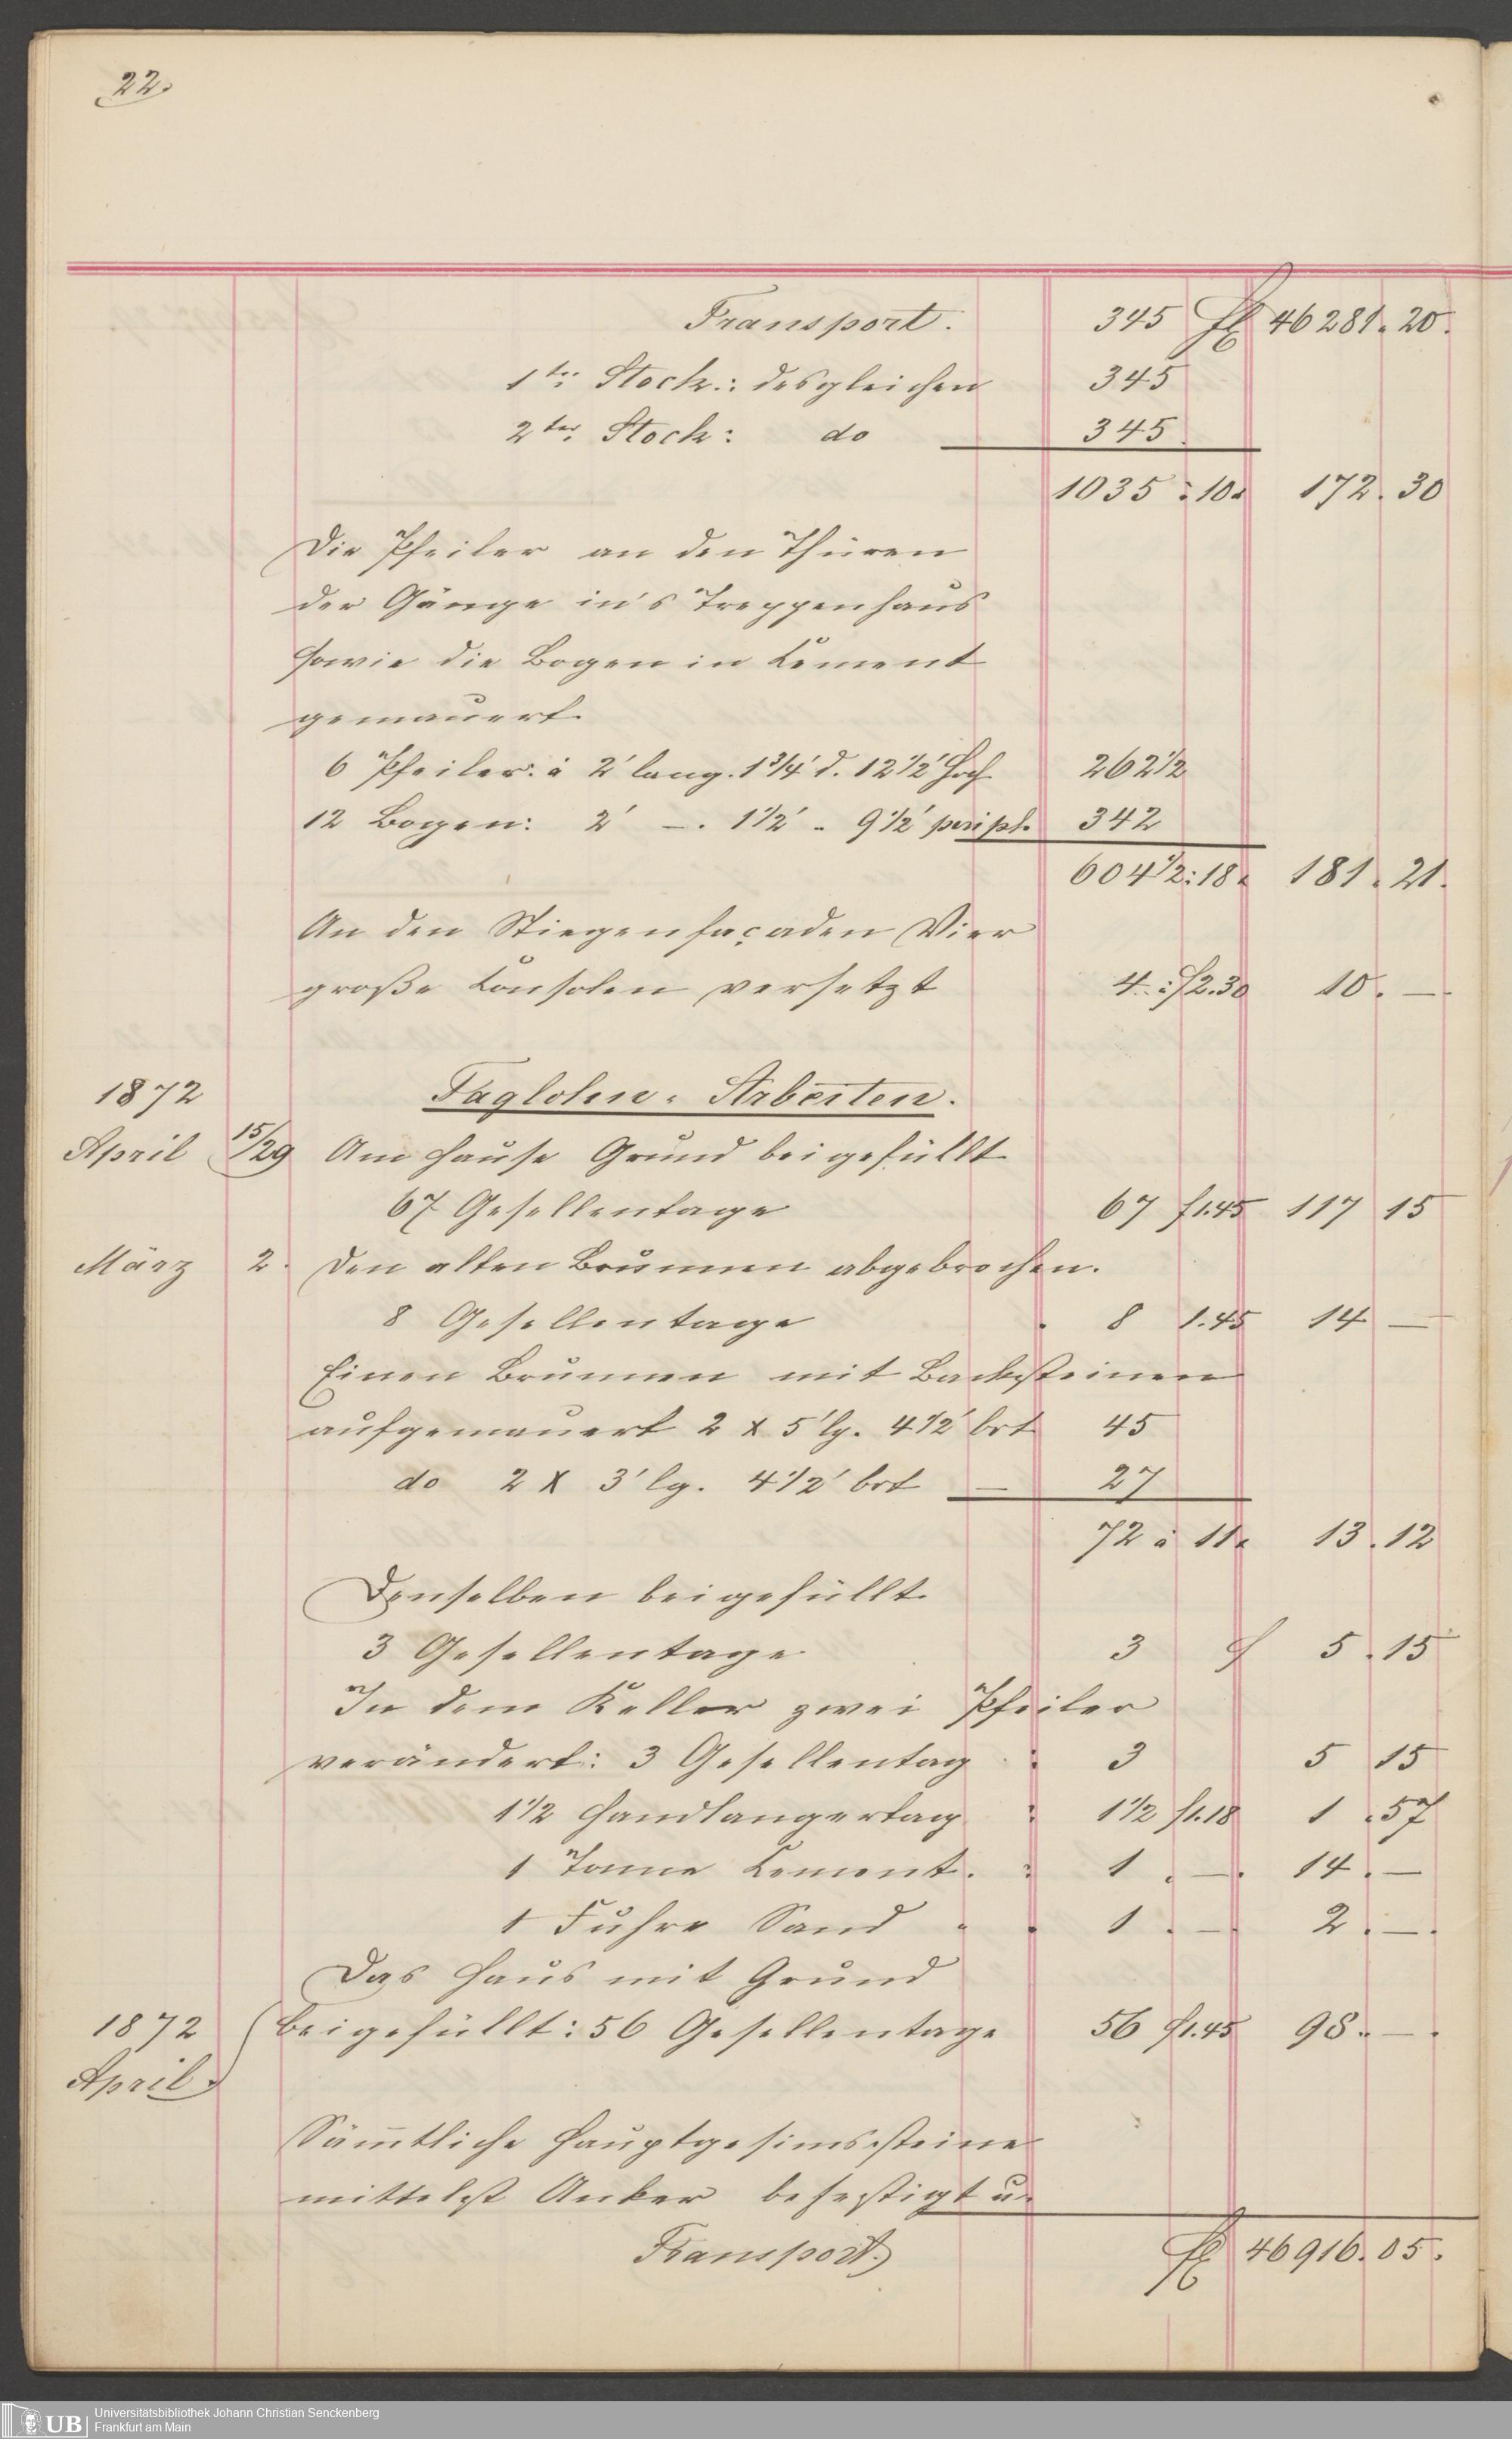 22.
Transport. 345 fl 46281. 20.
1ter Stock: desgleichen 345
2ter Stock: do 345.
1035 : 10 x 172. 30
Die Pfeiler an den Thüren
der Gänge in's Treppenhaus
sowie die Bogen in Cement
gemauert.
6 Pfeiler: à 2' lang. 1 3/4' d. 12 1/2' Hoch 262 1/2
12 Bogen: 2' —. 1 1/2' " 9 1/2' periph. 342
604 1/2 : 18 x 181. 21.
An den Stiegenfaçaden Vier
große Consolen versetzt 4.: f 2.30 10. —
1872 Taglohn-Arbeiten.
April 15/29 Am Hause Grund beigefüllt
67 Gesellentage 67 f 1.45 117 15
März 2. Den alten Brunnen abgebrochen.
8 Gesellentage 8 1.45 14 —
Einen Brunnen mit Backsteinen
aufgemauert 2 x 5' lg. 4 1/2' brt 45
do 2 x 3' lg. 4 1/2' brt — 27
72 à 11 x 13. 12
Denselben beigefüllt.
3 Gesellentage 3 f 5. 15
In dem Keller zwei Pfeiler
verändert: 3 Gesellentag : 3 5 15
1 1/2 Handlangertag : 1 1/2 f 1.18 1. 57
1 Tonne Cement. : 1 . —. 14. —
1 Fuhre Sand " " 1 . — 2. —.
Das Haus mit Grund
1872 beigefüllt: 56 Gesellentage 56 f 1.45 98. —.
April.
Sämtliche Hauptgesimssteine
mittelst Anker befestigt u.
Transport. fl 46916. 05.
UB Universitätsbibliothek Johann Christian Senckenberg
Frankfurt am Main